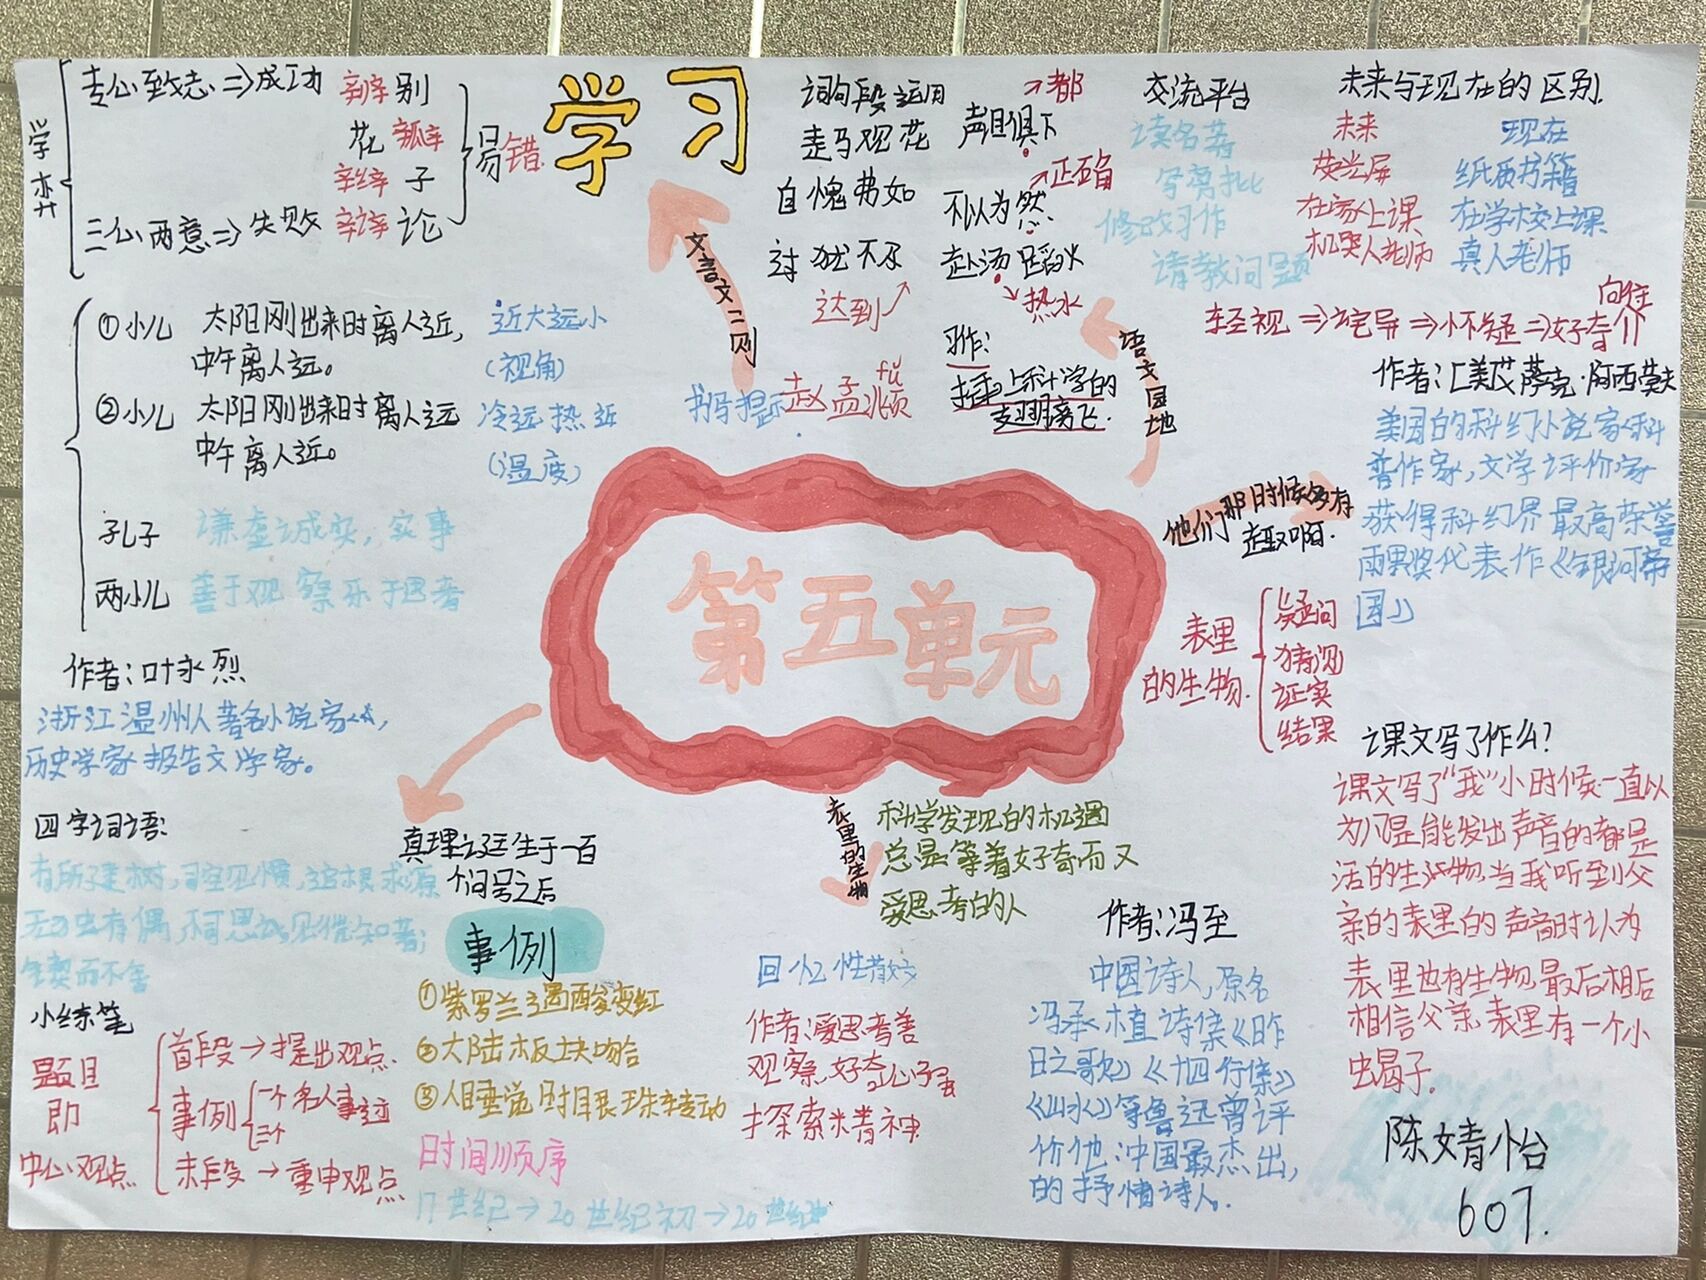 学弈
专心致志⇒成功
三心两意⇒失败
辨别
花瓣
辫子
辩论
易错
学习
文言文二则
①小儿 太阳刚出来时离人近,
中午离人远。
近大远小
(视角)
②小儿 太阳刚出来时离人远
中午离人近。
冷远热近
(温度)
孔子 谦虚诚实,实事
两小儿 善于观察乐于思考
书写提示 赵孟頫
fǔ
词句段运用
走马观花
自愧弗如
过犹不及
达到
声泪俱下
→都
不以为然
→正确
赴汤蹈火
→热水
习作:
插上科学的
翅膀飞.
语文园地
交流平台
读名著
写旁批
修改习作
请教问题
未来与现在的区别.
未来 现在
荧光屏 纸质书籍
在家上课 在学校上课
机器人老师 真人老师
轻视⇒诧异⇒怀疑⇒好奇
向往
他们那时候多有
趣啊.
作者:[美]艾萨克·阿西莫夫
美国的科幻小说家、科
普作家,文学评价家
获得科幻界最高荣誉
雨果奖代表作《银河帝
国》
第五单元
表里
的生物.
疑问
猜测
证实
结果
课文写了什么?
课文写了“我”小时候一直以
为凡是能发出声音的都是
活的生物,当我听到父
亲的表里的声音时认为
表里也有生物,最后相后
相信父亲,表里有一个小
虫蝎子.
作者:叶永烈
浙江温州人著名小说家,
历史学家报告文学家。
四字词语:
有所建树,司空见惯,追根求源
无独有偶,不可思议,见微知著;
锲而不舍
小练笔
题目
即
中心观点
首段→提出观点.
事例
一个名人事迹
三个
末段→重申观点
真理诞生于一百
个问号之后
事例
①紫罗兰遇酸变红
②大陆板块吻合
③人睡觉时眼珠转动
时间顺序
17世纪→20世纪初→20世纪
表里的生物
科学发现的机遇
总是等着好奇而又
爱思考的人
回忆性散文
作者:爱思考善
观察,好奇心强
探索精神
作者:冯至
中国诗人,原名
冯承植诗集《昨
日之歌》《十四行集》
《山水》等鲁迅曾评
价他:中国最杰出,
的抒情诗人.
陈婧怡
607.